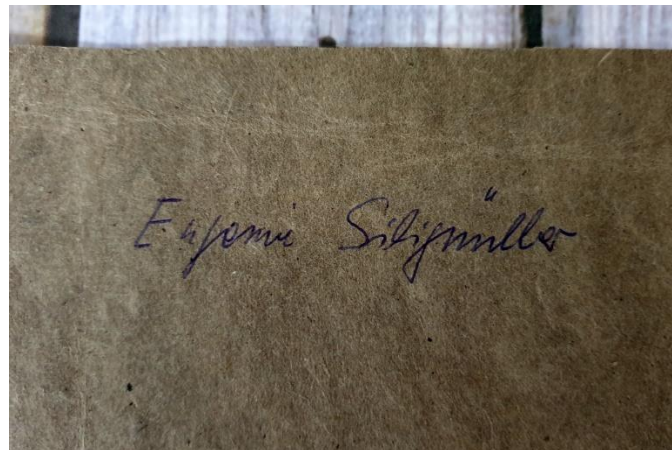 Eugenie Siligmüller